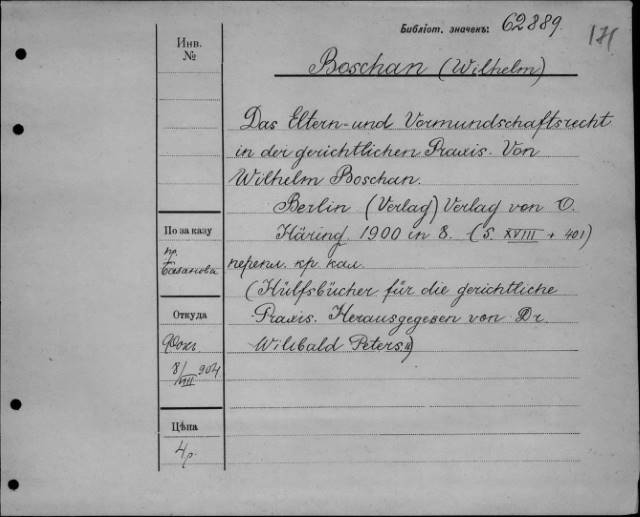 Библіот. значекъ: 62889. 171
Инв.
№
Boschan (Wilhelm)
Das Eltern- und Vormundschaftsrecht
in der gerichtlichen Praxis. Von
Wilhelm Boschan.
Berlin (Verlag) Verlag von O.
По заказу
Häring. 1900 in 8. (S. XVIII + 401)
пр.
Базанова
перепл. кр. кал.
(Hülfsbücher für die gerichtliche
Откуда
Praxis. Herausgegesen von Dr.
Wilibald Peters.)
8/VIII 904
Цѣна
4 р.